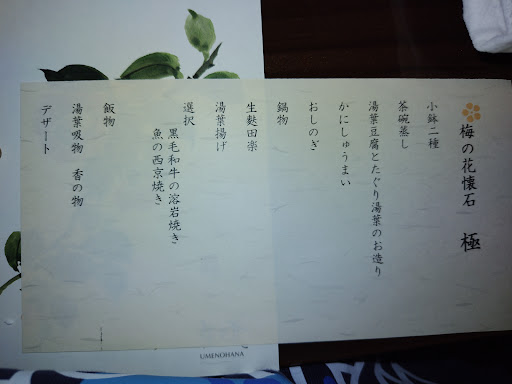 梅の花懐石 極
小鉢二種
茶碗蒸し
湯葉豆腐とたぐり湯葉のお造り
かにしゅうまい
おしのぎ
鍋物
生麩田楽
湯葉揚げ
選択
黒毛和牛の溶岩焼き
魚の西京焼き
飯物
湯葉吸物 香の物
デザート
UMENOHANA